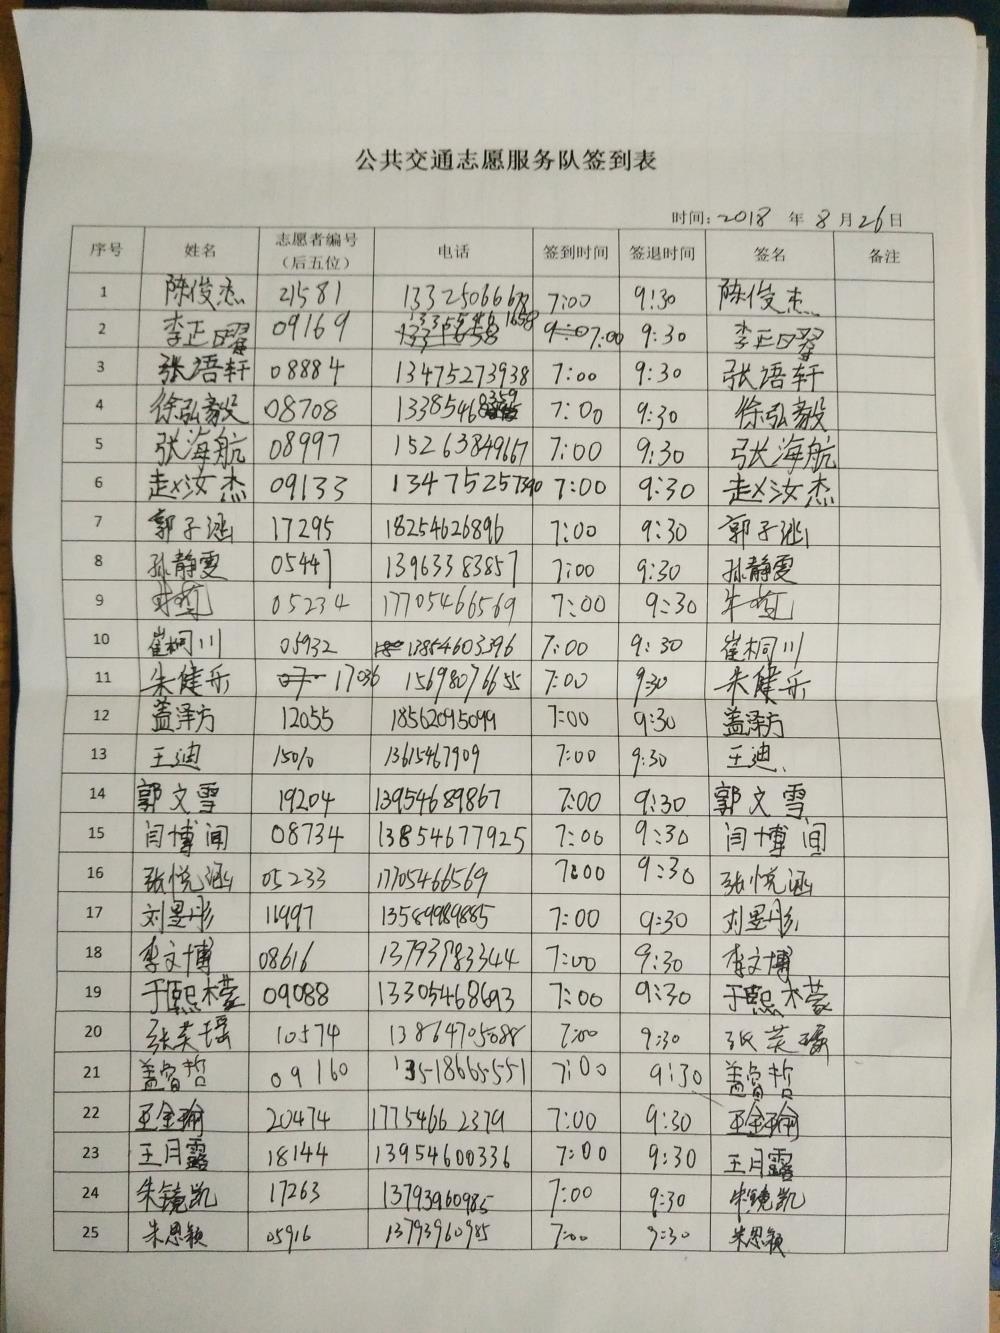 公共交通志愿服务队签到表
时间: 2018 年 8 月 26 日
序号 姓名 志愿者编号（后五位） 电话 签到时间 签退时间 签名 备注
1 陈俊杰 21581 13325066678 7:00 9:30 陈俊杰
2 李正曙 09169 7:00 9:30 李正曙
3 张语轩 08884 13475273938 7:00 9:30 张语轩
4 徐弘毅 08708 13385460359 7:00 9:30 徐弘毅
5 张海航 08997 15263849667 7:00 9:30 张海航
6 赵汝杰 09133 13475257390 7:00 9:30 赵汝杰
7 郭子涵 17295 18254626896 7:00 9:30 郭子涵
8 孙静雯 05447 13963383857 7:00 9:30 孙静雯
9 05234 17705466569 7:00 9:30
10 崔桐川 05932 13854603396 7:00 9:30 崔桐川
11 朱健乐 17036 15698076655 7:00 9:30 朱健乐
12 盖泽方 12055 18562095099 7:00 9:30 盖泽方
13 王迪 13615467909 7:00 9:30 王迪
14 郭文雪 19204 13954689867 7:00 9:30 郭文雪
15 闫博闻 08734 13854677925 7:00 9:30 闫博闻
16 张悦涵 05233 17705466569 7:00 9:30 张悦涵
17 刘昱彤 11997 13589989885 7:00 9:30 刘昱彤
18 李文博 08616 13793783344 7:00 9:30 李文博
19 于熙檬 09088 13305468693 7:00 9:30 于熙檬
20 张芙瑶 10574 13864705088 7:00 9:30 张芙瑶
21 盖睿哲 09160 13518665551 7:00 9:30 盖睿哲
22 王金瑜 20474 17754662379 7:00 9:30 王金瑜
23 王月露 18144 13954600336 7:00 9:30 王月露
24 朱镜凯 17263 13793960985 7:00 9:30 朱镜凯
25 朱恩颖 05916 13793960985 7:00 9:30 朱恩颖